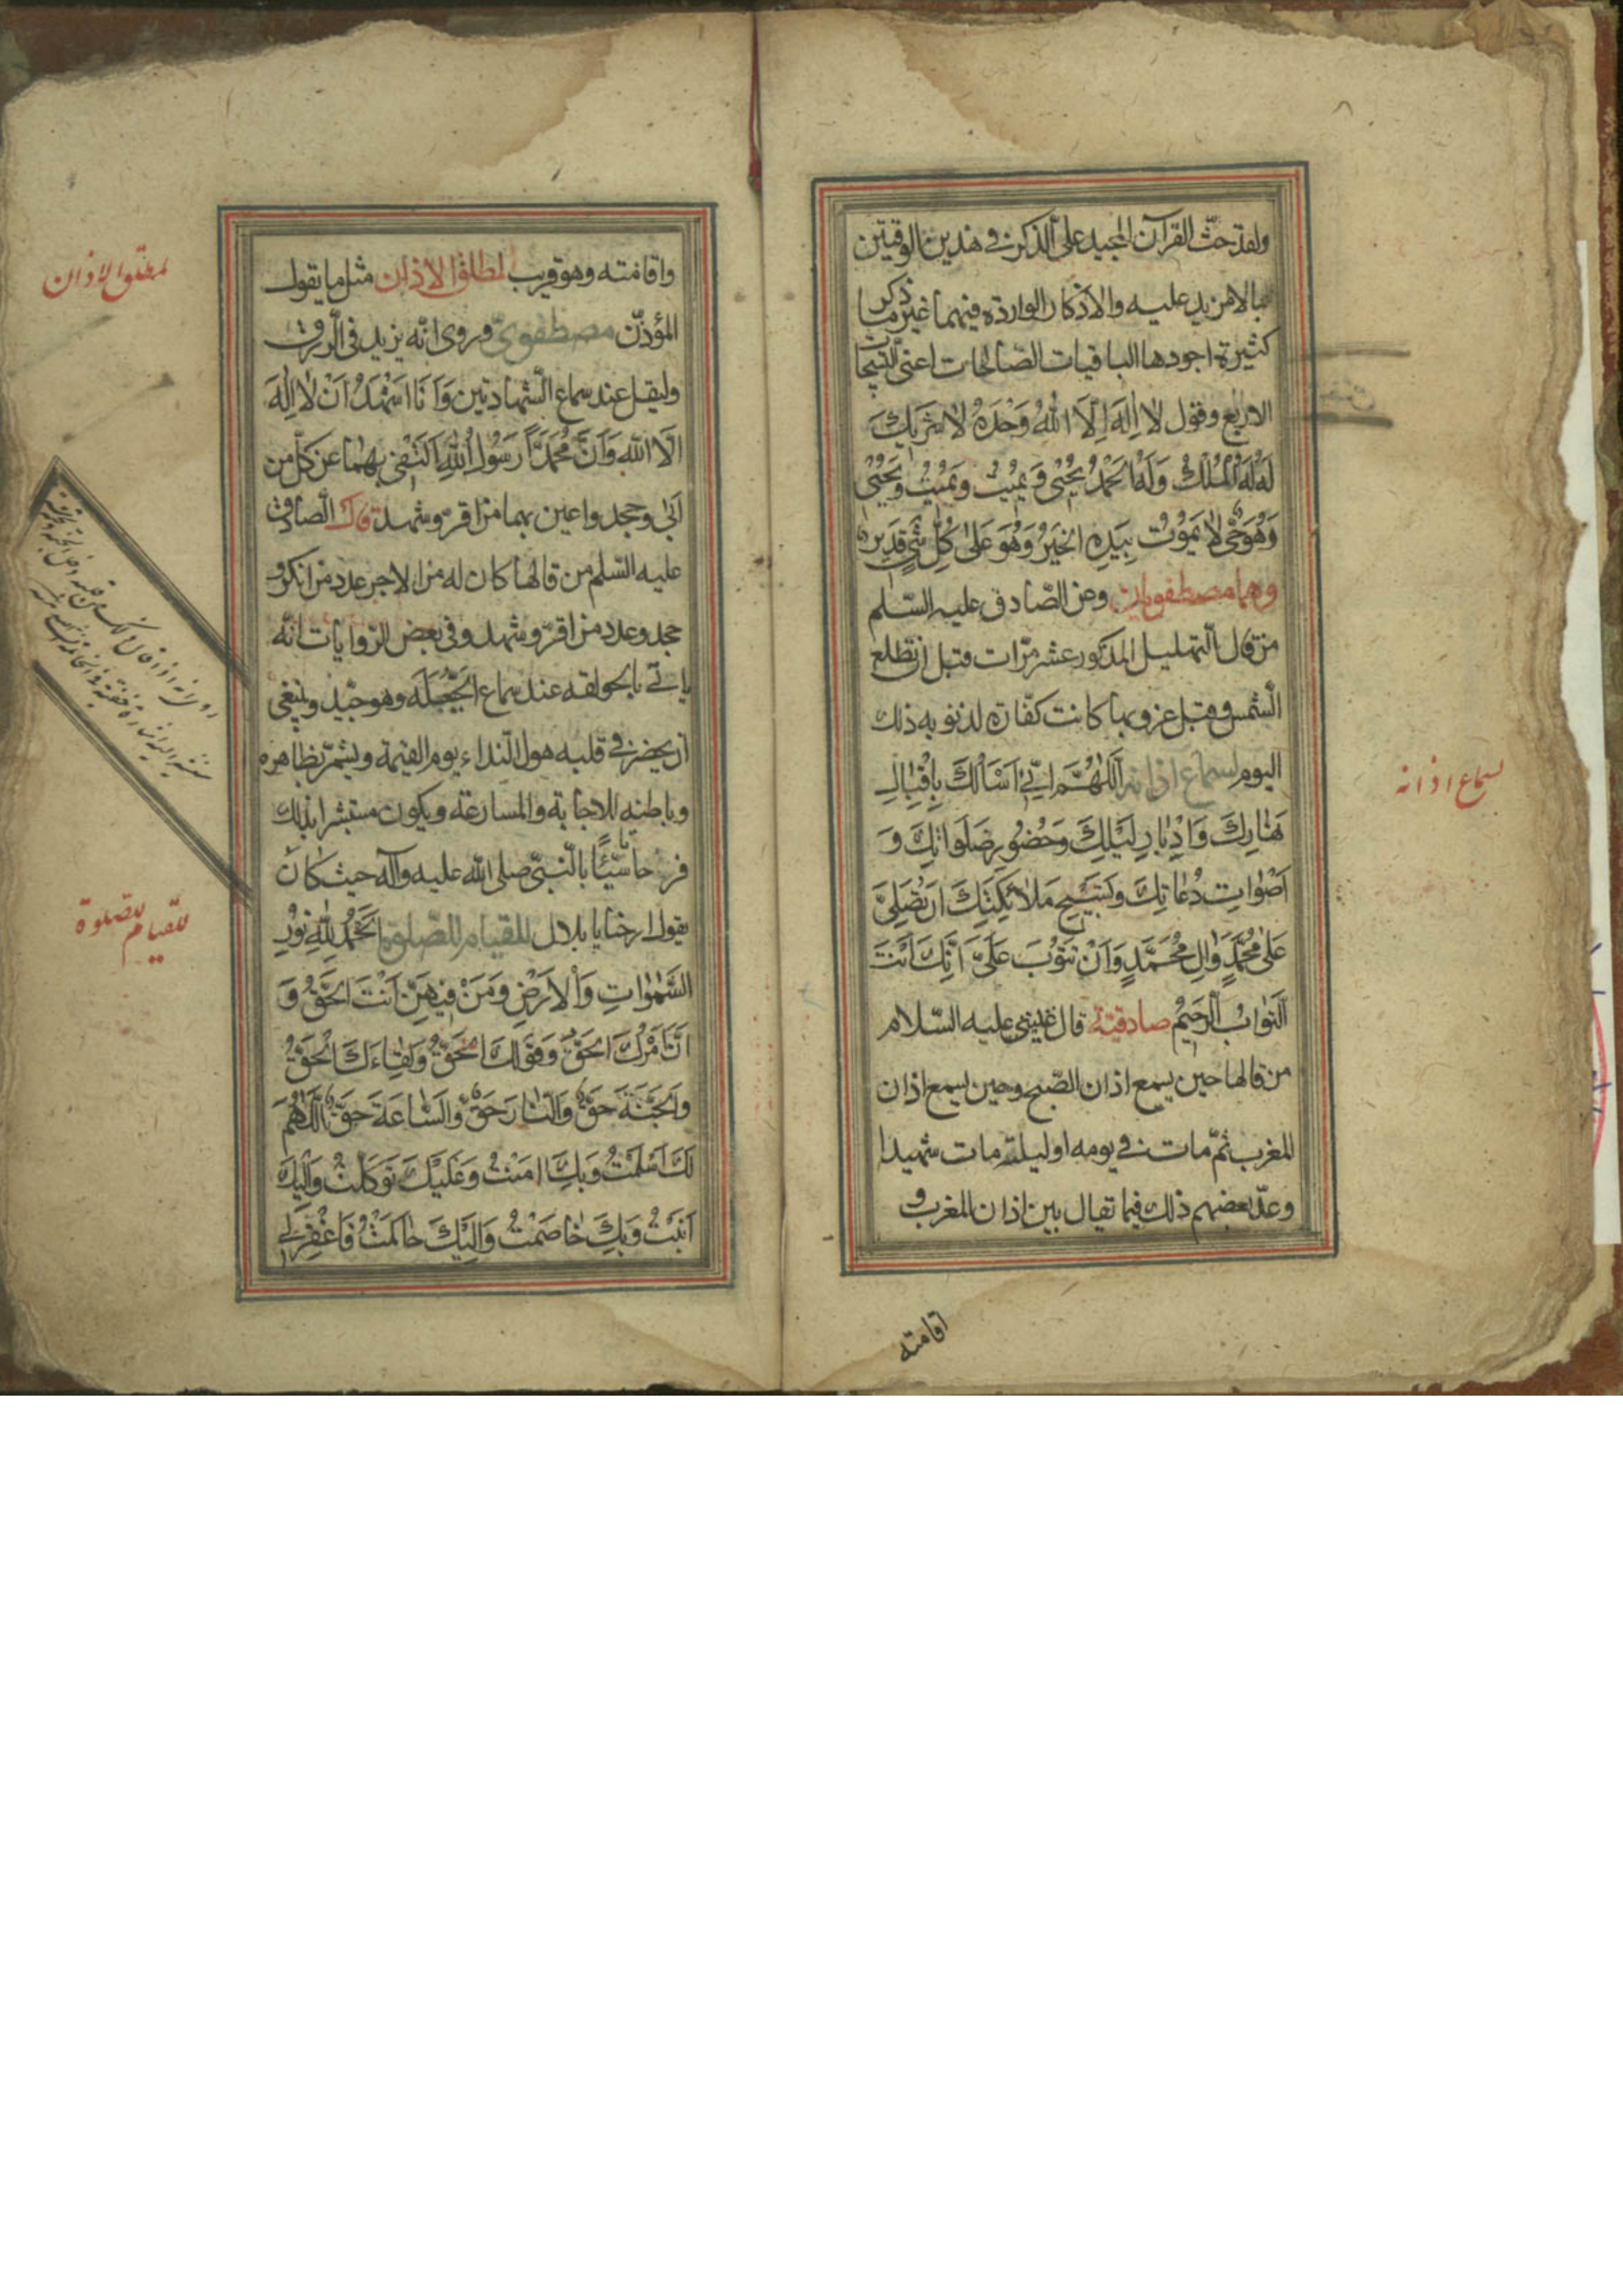 ولقد حثّ القرآن المجيد على الذكر في هذين الوقتين
بما لا مزيد عليه والاذكار الواردة فيهما غير ما ذكر
كثيرة اجودها الباقيات الصّالحات اعنى التّسبيحات
الاربع وقول لا اِلهَ اِلّا اللهُ وَحْدَهُ لا شَريكَ
لَهُ لَهُ الْمُلْكُ وَلَهُ الحَمْدُ يُحْيِى وَ يُمِيْتُ وَيُمِيْتُ وَيُحْيِى
وَهُوَ حَىٌّ لا يَمُوْتُ بِيَدِهِ الخَيْرُ وَهُوَ عَلى كُلِّ شَىْءٍ قَدِيرٌ
وهما مصطفويان وعن الصّادق عليه السّلم
من قال التّهليل المذكور عشر مرّات قبل ان تطلع
الشّمس وقبل غروبها كانت كفّارة لذنوبه ذلك
اليوم لسماع اذانه اَللّهُمَّ اِنّى اَسْاَلُكَ بِاِقْبالِ
نَهارِكَ وَاِدْبارِ لَيْلِكَ وَحُضُورِ صَلَواتِكَ وَ
اَصْواتِ دُعاتِكَ وَتَسْبيحِ مَلائِكَتِكَ اَنْ تُصَلِّىَ
عَلى مُحَمَّدٍ وَالِ مُحَمَّدٍ وَاَنْ تَتُوْبَ عَلَىَّ اِنَّكَ اَنْتَ
التَّوّابُ الرَّحيمُ صادقيّة قال عليه السّلام
من قالها حين يسمع اذان الصّبح وحين يسمع اذان
المغرب ثمّ مات في يومه او ليلته مات شهيدا
وعدّ بعضهم ذلك فيما تقال بين اذان المغرب و
اقامته
لسماع اذانه
واقامته وهو قريب لمطلق الاذان مثل ما يقول
المؤذّن مصطفوىّ وروى انّه يزيد في الرّزق
وليقل عند سماع الشّهادتين وَاَنَا اَشْهَدُ اَنْ لا اِلهَ
اِلّا اللهُ وَاَنَّ مُحَمَّدًا رَسُولُ اللهِ اَكْتَفى بِهما عن كلّ من
ابى وجحد واعين بهما من اقرّ وشهد قال الصّادق
عليه السّلم من قالها كان له من الاجر عدد من انكر و
جحد وعدد من اقرّ وشهد وفي بعض الرّوايات انّه
ياتى بالحولقه عند سماع الحيّعلة وهو جيّد وينبغى
ان يحضر في قلبه هول النّداء يوم القيمة ويشمّر بظاهره
وباطنه للاجابة والمسارعة ويكون مستبشرا بذلك
فرحا تأسّيًا بالنّبىّ صلى الله عليه وآله حيث كان
يقول ارحنا يا بلال للقيام للصّلوة اَلحَمْدُ لِلّهِ نُوْرِ
السَّمواتِ وَالْاَرْضِ وَمَنْ فِيهِنَّ اَنْتَ الحَقُّ وَ
اَمْرُكَ الحَقُّ وَقَوْلُكَ الحَقُّ وَلِقاءُكَ الحَقُّ
وَالجَنَّةُ حَقٌّ وَالنّارُ حَقٌّ وَالسّاعَةُ حَقٌّ اَللّهُمَّ
لَكَ اَسْلَمْتُ وَبِكَ امَنْتُ وَعَلَيْكَ تَوَكَّلْتُ وَاِلَيْكَ
اَنَبْتُ وَبِكَ خاصَمْتُ وَاِلَيْكَ حاكَمْتُ فَاغْفِرْ لى
لمطلق الاذان
للقيام للصلوة